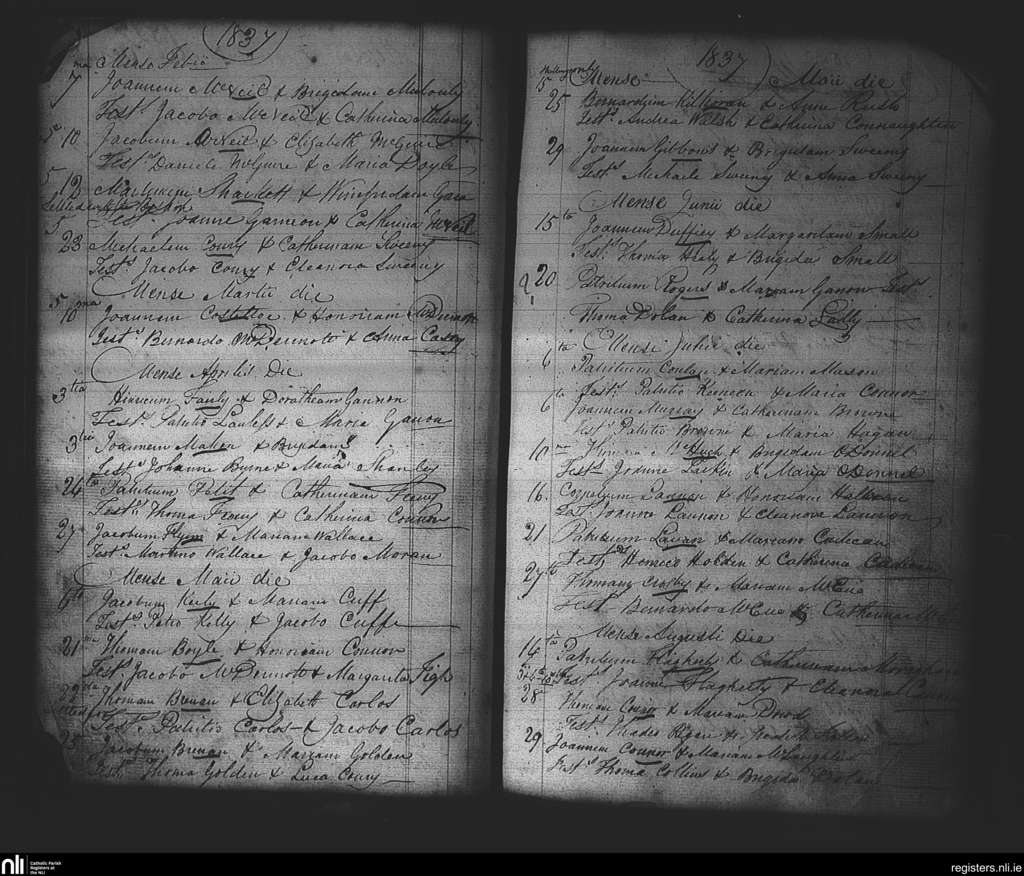 1837
Mense Febii
7ma Joannem McNeil & Brigidam Mulouly
Test. Jacobo McNeil & Catherina Mulouly
10 Jacobum McNeil & Elizabeth McGuire
Test. Daniele McGuire & Maria Doyle
12 Martinum Shackett & Winifridam Gara
Test. Joanne Gannon & Catherina McNeil
23 Michaelem Conry & Catherinam Sweeny
Test. Jacobo Conry & Eleanora Sweeny
Mense Martii die
10ma Joannem Costelloe & Honoriam McDermott
Test. Bernardo McDermott & Anna Casey
Mense Aprilis Die
3tia Fauly & Dorotheam Gannon
Test. Patritio Lawless & Maria Ganon
3tia Joannem Maken & Brigidam
Test. Johanne Byrne & Maria Shanley
24 Patritium Petit & Catherinam Feeny
Test. Thoma Feeny & Catherina Connor
27 Jacobum Flynn & Mariam Wallace
Test. Martino Wallace & Jacobo Moran
Mense Maii die
6 Jacobum Keily & Mariam Cuff
Test. Petro Kelly & Jacobo Cuffe
21 Thomam Boyle & Honoriam Connor
Test. Jacobo McDermott & Margarita Figh
22 Thomam Brenan & Elizabeth Carlos
Test. Patritio Carlos & Jacobo Carlos
25 Jacobum Brenan & Mariam Golden
Test. Thoma Golden & Luca Conry
1837
Mense Maii die
25 Bernardum Kilkoran & Anne Rush
Test. Andrea Walsh & Catherina Connaughten
29 Joannem Gibbons & Brigidam Sweeny
Test. Michaele Sweeny & Anna Sweeny
Mense Junii die
15ta Joannem Duffiey & Margaritam Small
Test. Thoma Healy & Brigida Small
20 Patritium Rogers & Mariam Ganon Test.
Thoma Dolan & Catherina Lally
Mense Julii die
6ta Patritium Conlan & Mariam Muson
Test. Patritio Keneen & Maria Connor
6ta Joannem Murray & Catherinam Browne
Test. Patritio Browne & Maria Hagan
10ma Thomam McHugh & Brigidam ODonnel
Test. Joanne Larkin & Maria ODonnel
16. Lannon & Honoriam
Test. Joanne Lannon & Eleanora Lannon
21 Patritium Lavan & Mariam Cadecan
Test. Henrico Holden & Catherina Cadecan
27 Thomam Crosby & Mariam McCue
Test. Bernardo McCue & Catherina
Mense Augusti Die
14ta Patritium & Catherinam
Test. Joanne Flagherty & Eleanora
28 Thomam Connor & Mariam Dowd
Test. Thadeo Regan &
29 Joannem Connor & Mariam McLaughlin
Test. Thoma Collins & Brigida Dolan
nli
Catholic Parish
Registers at
the NLI
registers.nli.ie